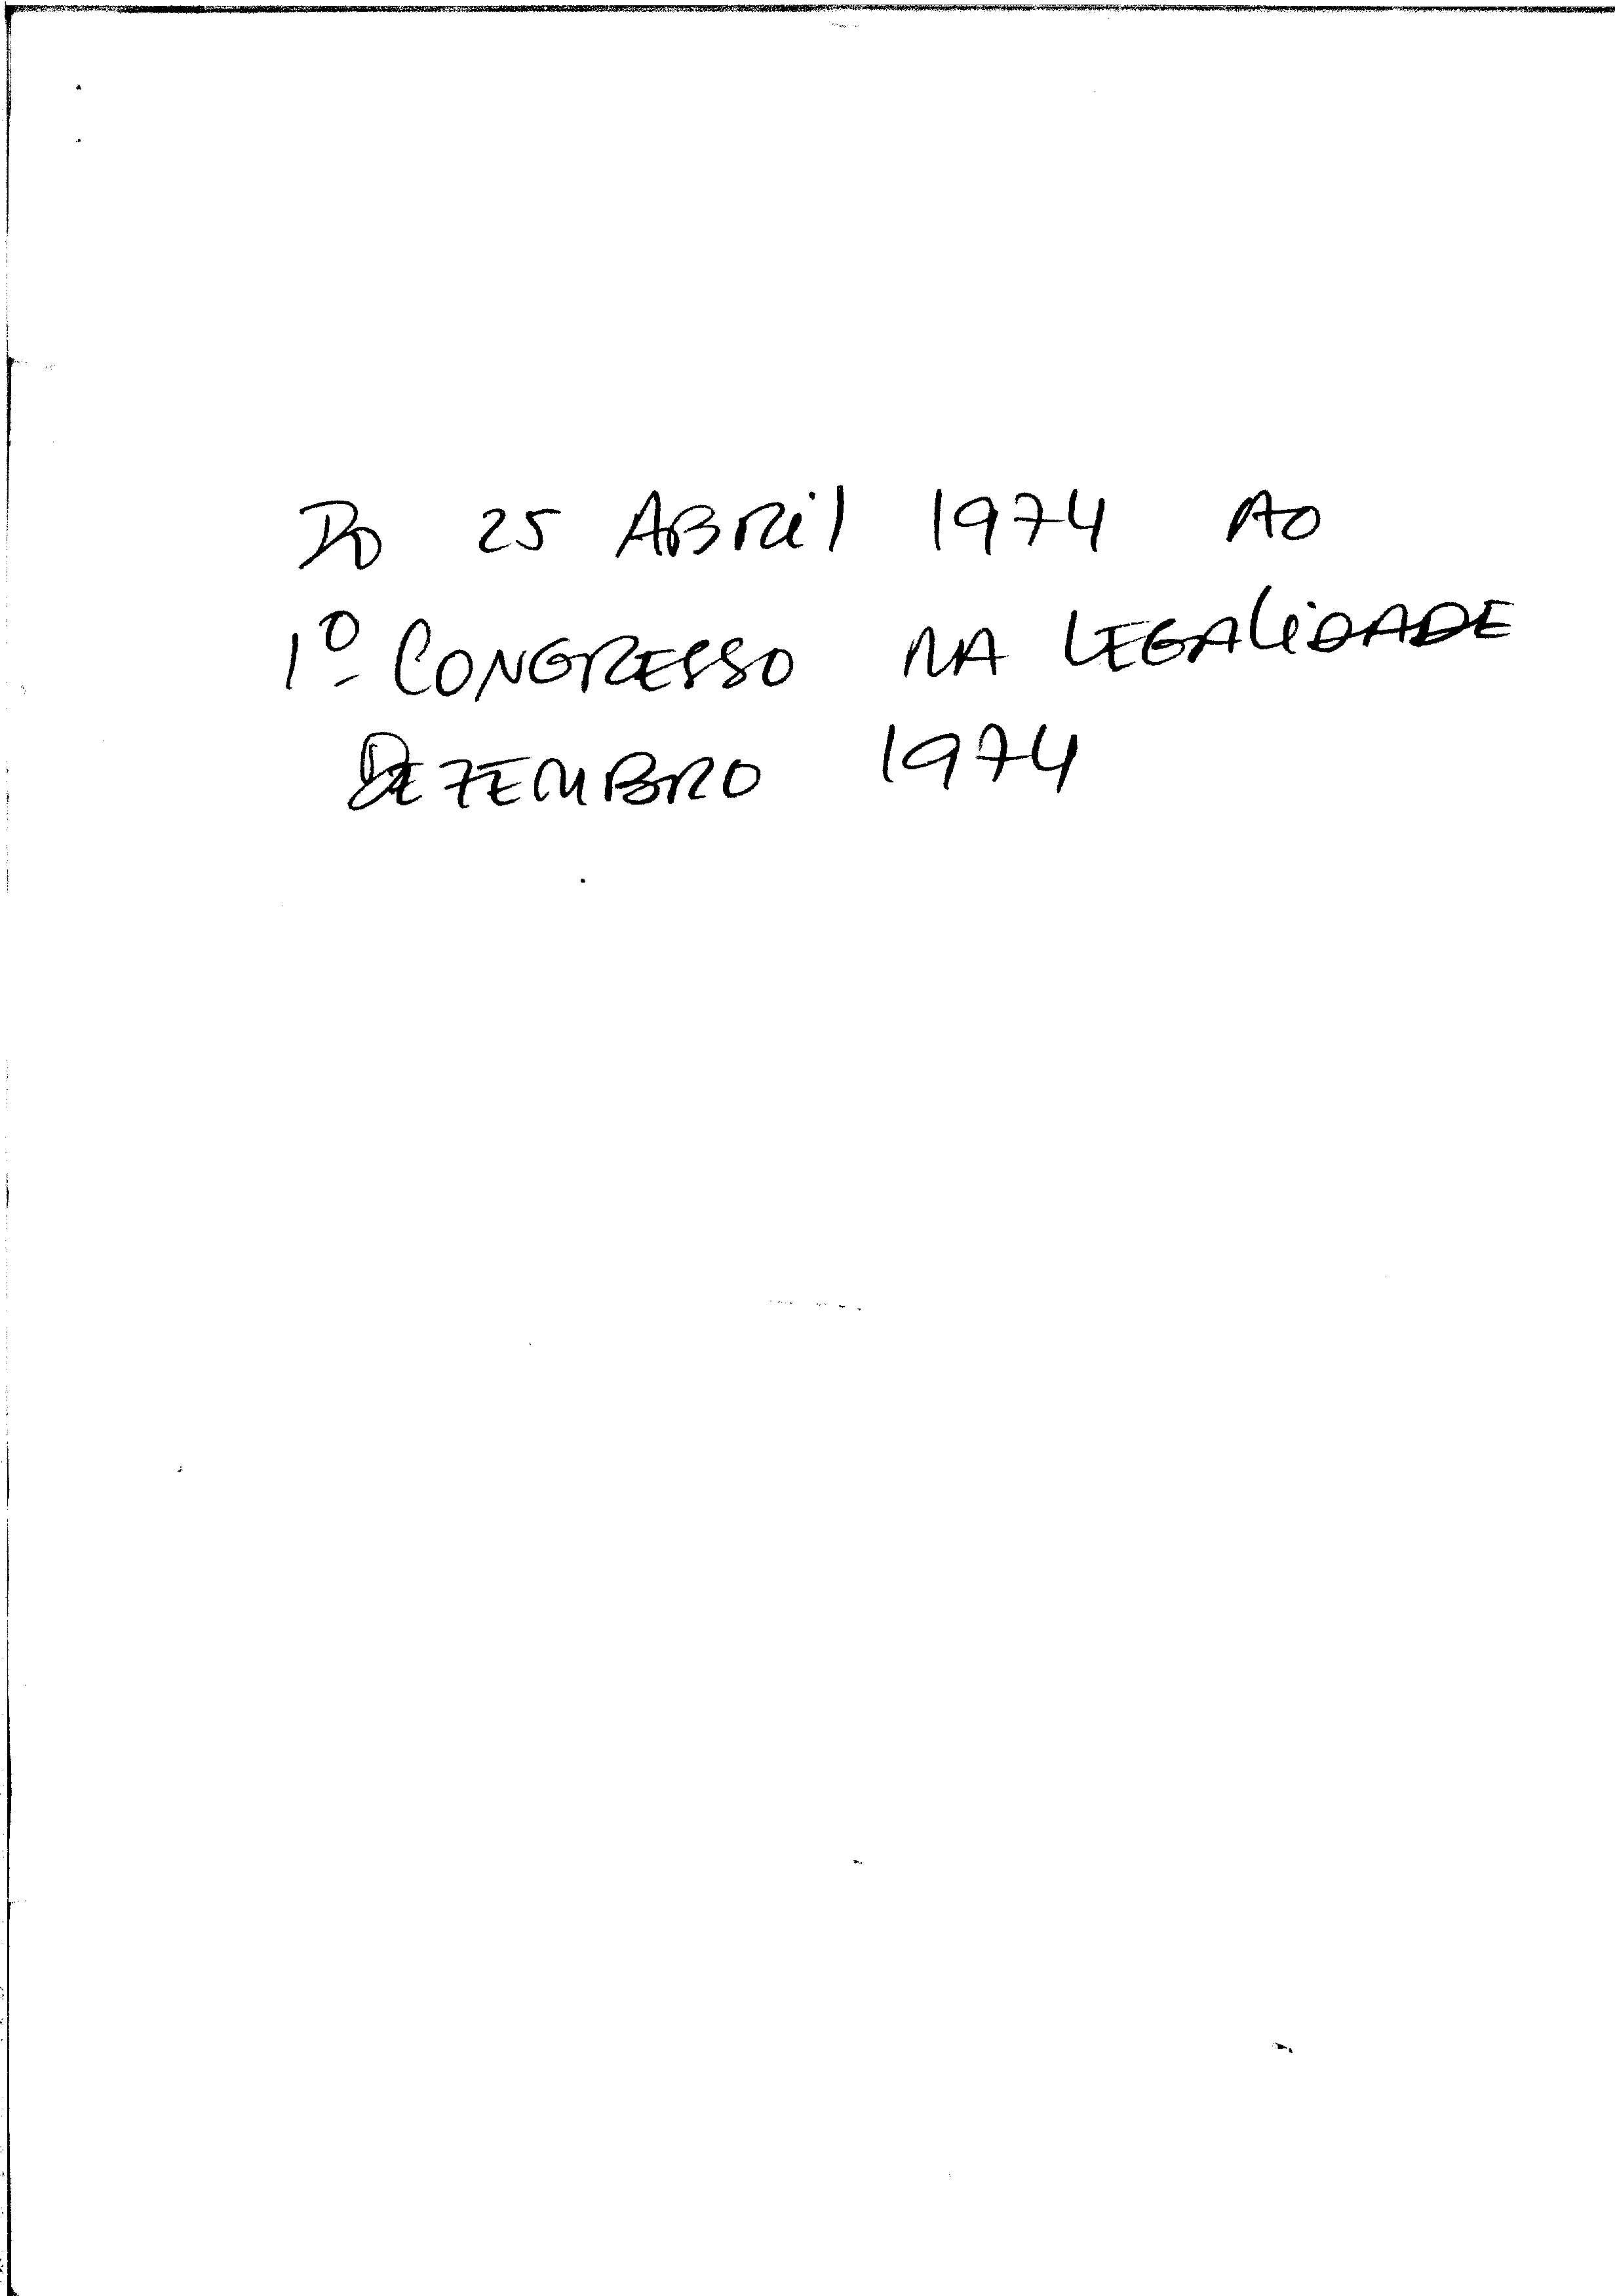 Do 25 ABRIL 1974 AO
1º CONGRESSO NA LEGALIDADE
DEZEMBRO 1974